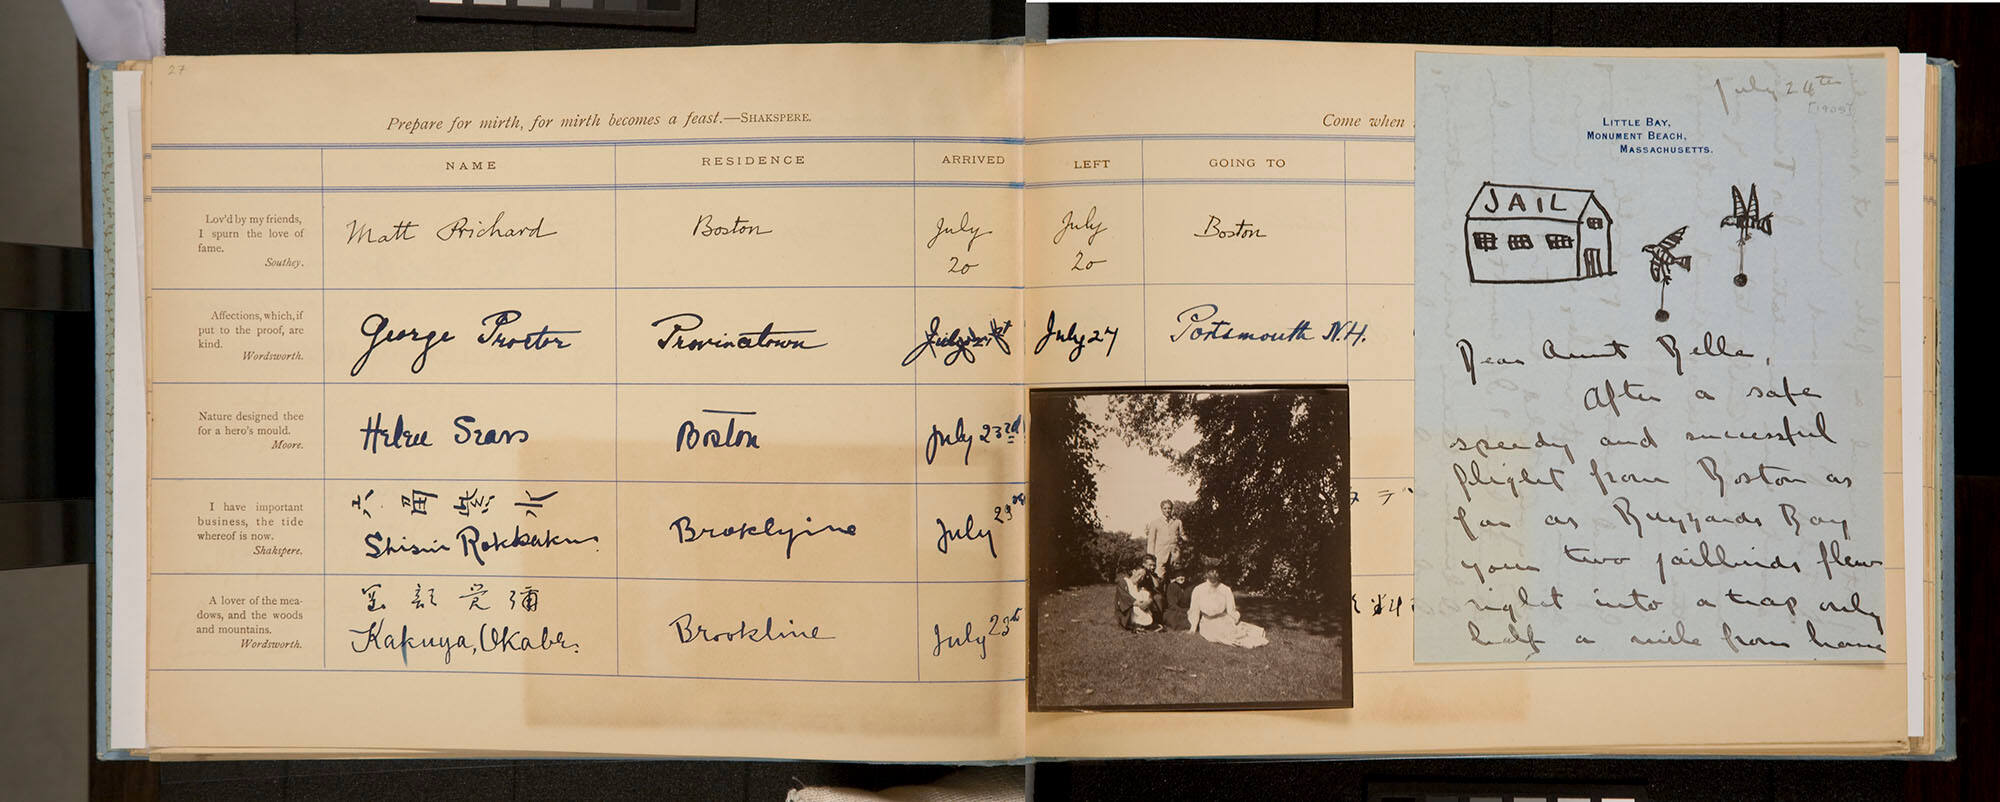 27
Prepare for mirth, for mirth becomes a feast.—SHAKSPERE.
NAME RESIDENCE ARRIVED
Lov'd by my friends,
I spurn the love of
fame.
Southey.
Matt Prichard Boston July
20
Affections, which, if
put to the proof, are
kind.
Wordsworth.
George Proctor Provincetown July 21st
Nature designed thee
for a hero's mould.
Moore.
Helen Sears Boston July 23rd
I have important
business, the tide
whereof is now.
Shakspere.
六
Shisui Rokkaku Brooklyine July 23rd
A lover of the mea-
dows, and the woods
and mountains.
Wordsworth.
覚彌
Kakuya, Okabe. Brookline July 23th
Come when
LEFT GOING TO
July
20 Boston
July 27 Portsmouth N.H.
July 24th
[1905]
LITTLE BAY,
MONUMENT BEACH,
MASSACHUSETTS.
JAIL
Dear Aunt Belle,
After a safe
speedy and successful
flight from Boston as
far as Buzzards Bay
your two jailbirds flew
right into a trap only
half a mile from home